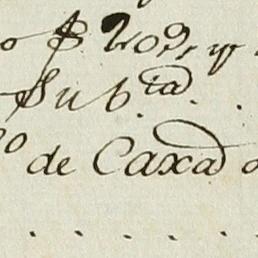 o $ 209, y
Sub.ia
o de Caxa
. . . . . .